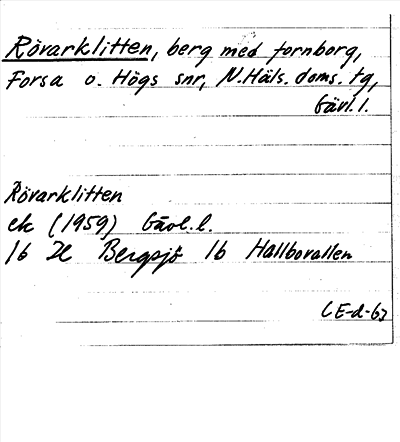 Rövarklitten, berg med fornborg,
Forsa o. Högs snr, N. Häls. doms. tg,
Gävl. l.
Rövarklitten
ek (1959) Gävl. l.
16 H Bergsjö 16 Hallbovallen
CE-d-67